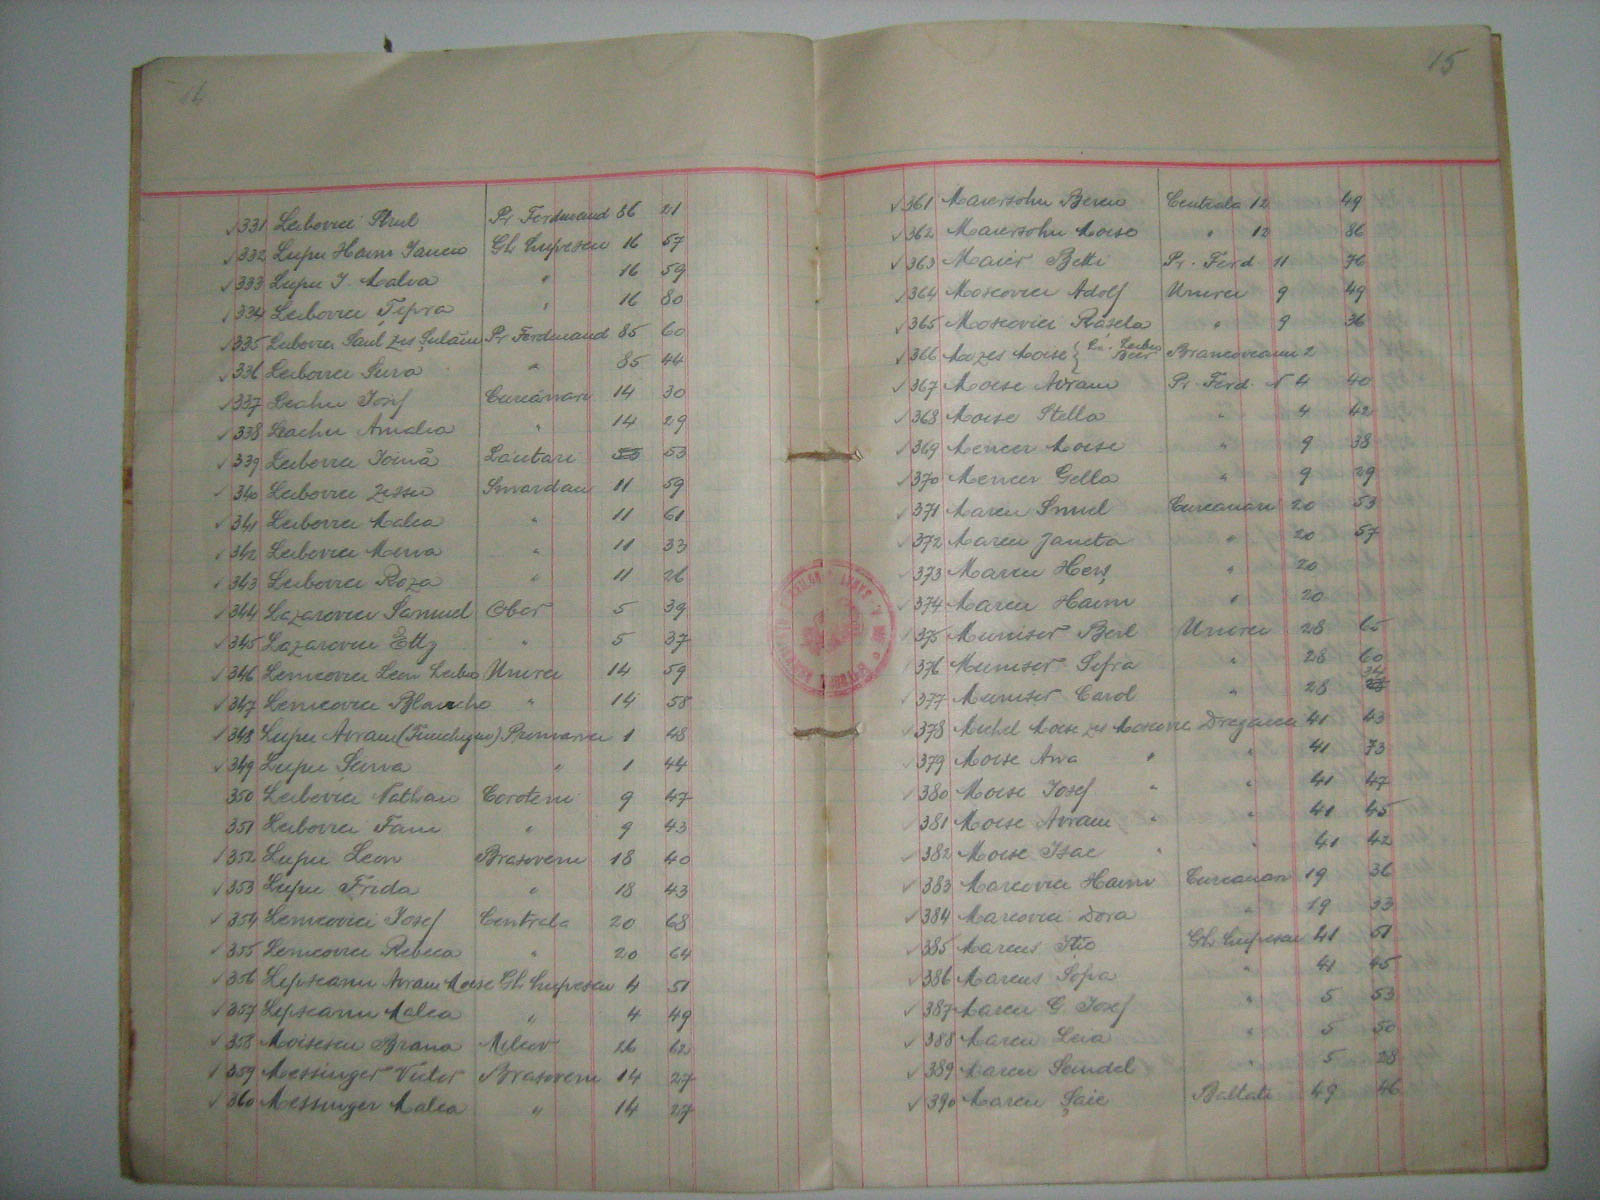 14
331 Leibovici Strul Pr. Ferdinand 86 21
332 Lupu Haim Iancu Gh. Lupescu 16 57
333 Lupu I. Malva " 16 59
334 Leibovici Țipra " 16 80
335 Leibovici Saul zis Șulăm Pr. Ferdinand 85 60
336 Leibovici Sura " 85 44
337 Leahu Iosif Curcănari 14 30
338 Leahu Amalia " 14 29
339 Leibovici Toină Lăutari 53
340 Leibovici Zissu Smardan 11 59
341 Leibovici Malca " 11 61
342 Leibovici Mina " 11 33
343 Leibovici Roza " 11 26
344 Lazarovici Samuel Obor 5 39
345 Lazarovici Etty " 5 37
346 Leivicovici Leon Leibu Unirei 14 59
347 Leivicovici Blancho " 14 58
348 Lupu Avram (Tinichigiu) Primariei 1 48
349 Lupu Surva " 1 44
350 Leibovici Nathan Coroteni 9 47
351 Leibovici Fani " 9 43
352 Lupu Leon Brasoveni 18 40
353 Lupu Frida " 18 43
354 Leivicovici Iosef Centrala 20 68
355 Leivicovici Rebeca " 20 64
356 Lipscanu Avram Moise Gh. Lupescu 4 51
357 Lipscanu Malca " 4 49
358 Moisescu Brana Milcov 26 62
359 Messinger Victor Brasoveni 14 27
360 Messinger Malca " 14 27
15
361 Maiersohn Bercu Centrala 12 49
362 Maiersohn Moise " 12 86
363 Maier Betti Pr. Ferd 11 76
364 Moscovici Adolf Unirei 9 49
365 Moscovici Rașela " 9 36
366 Mozes Moise Brancoveanu 2
367 Moise Avram Pr. Ferd. 4 40
368 Moise Stella " 4 42
369 Mencer Moise " 9 38
370 Mencer Gella " 9 29
371 Marcu Smil Curcanari 20 53
372 Marcu Janeta " 20 57
373 Marcu Herș " 20
374 Marcu Haim " 20
375 Muniser Berl Unirei 28 65
376 Muniser Sifra " 28 60
377 Muniser Carol " 28
378 Michel Moise zis Moscovici Dragaica 41 43
379 Moise Ana " " 41 73
380 Moise Iosef " " 41 47
381 Moise Avram " " 41 45
382 Moise Isac " " 41 42
383 Marcovici Haim Curcanari 19 36
384 Marcovici Dora " 19 33
385 Marcus Ițio Gh. Lupescu 41 51
386 Marcus Sofia " 41 45
387 Marcu G. Iosef " 5 53
388 Marcu Leia " 5 50
389 Marcu Șeindel " 5 28
390 Marcu Șaie Baltati 49 46